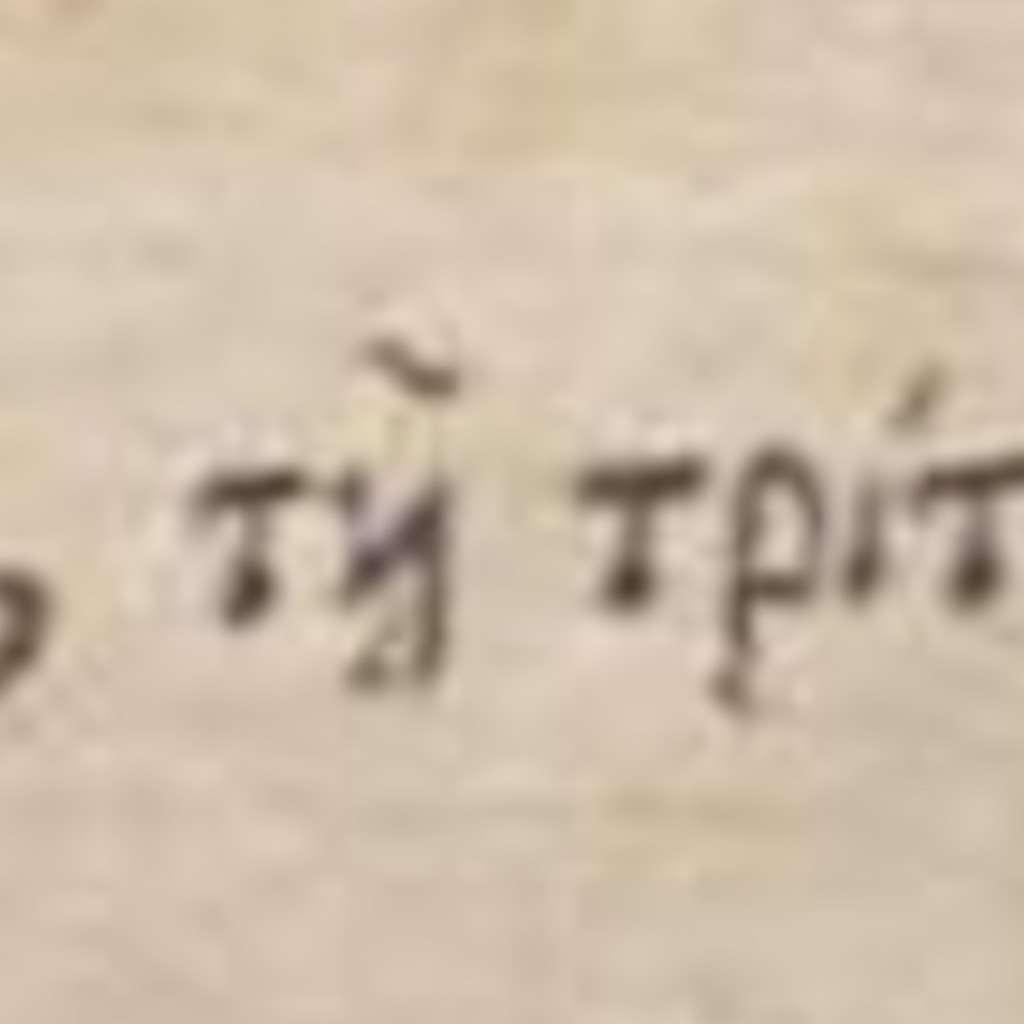 , τῇ τρίτ